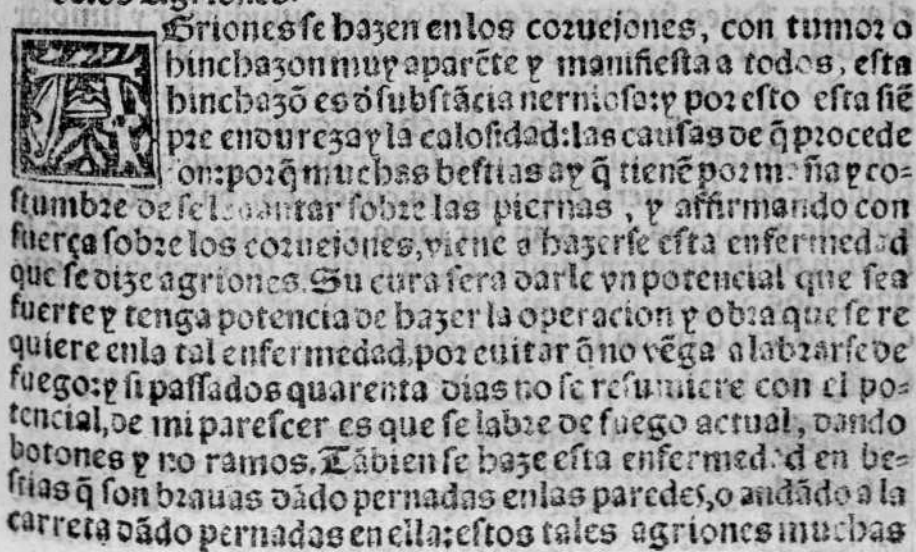 AGriones se hazen en los coruejones, con tumor o
hinchazon muy aparẽte y manifiesta a todos, esta
hinchazõ es d̃ substãcia neruiosa: y por esto esta siẽ
pre en dureza y la calosidad: las causas de q̃ procede
son: porq̃ muchas bestias ay q̃ tienẽ por maña y co=
stumbre de se leuantar sobre las piernas, y affirmando con
fuerça sobre los coruejones, viene a hazerse esta enfermedad
que se dize agriones. Su cura sera darle vn potencial que sea
fuerte y tenga potencia de hazer la operacion y obra que se re
quiere enla tal enfermedad, por euitar q̃ no vẽga a labrarse de
fuego: y si passados quarenta dias no se resumiere con el po=
tencial, de mi parescer es que se labre de fuego actual, dando
botones y no ramos. Tãbien se haze esta enfermedad en be=
stias q̃ son brauas dãdo pernadas enlas paredes, o andãdo a la
carreta dãdo pernadas en ella: estos tales agriones muchas